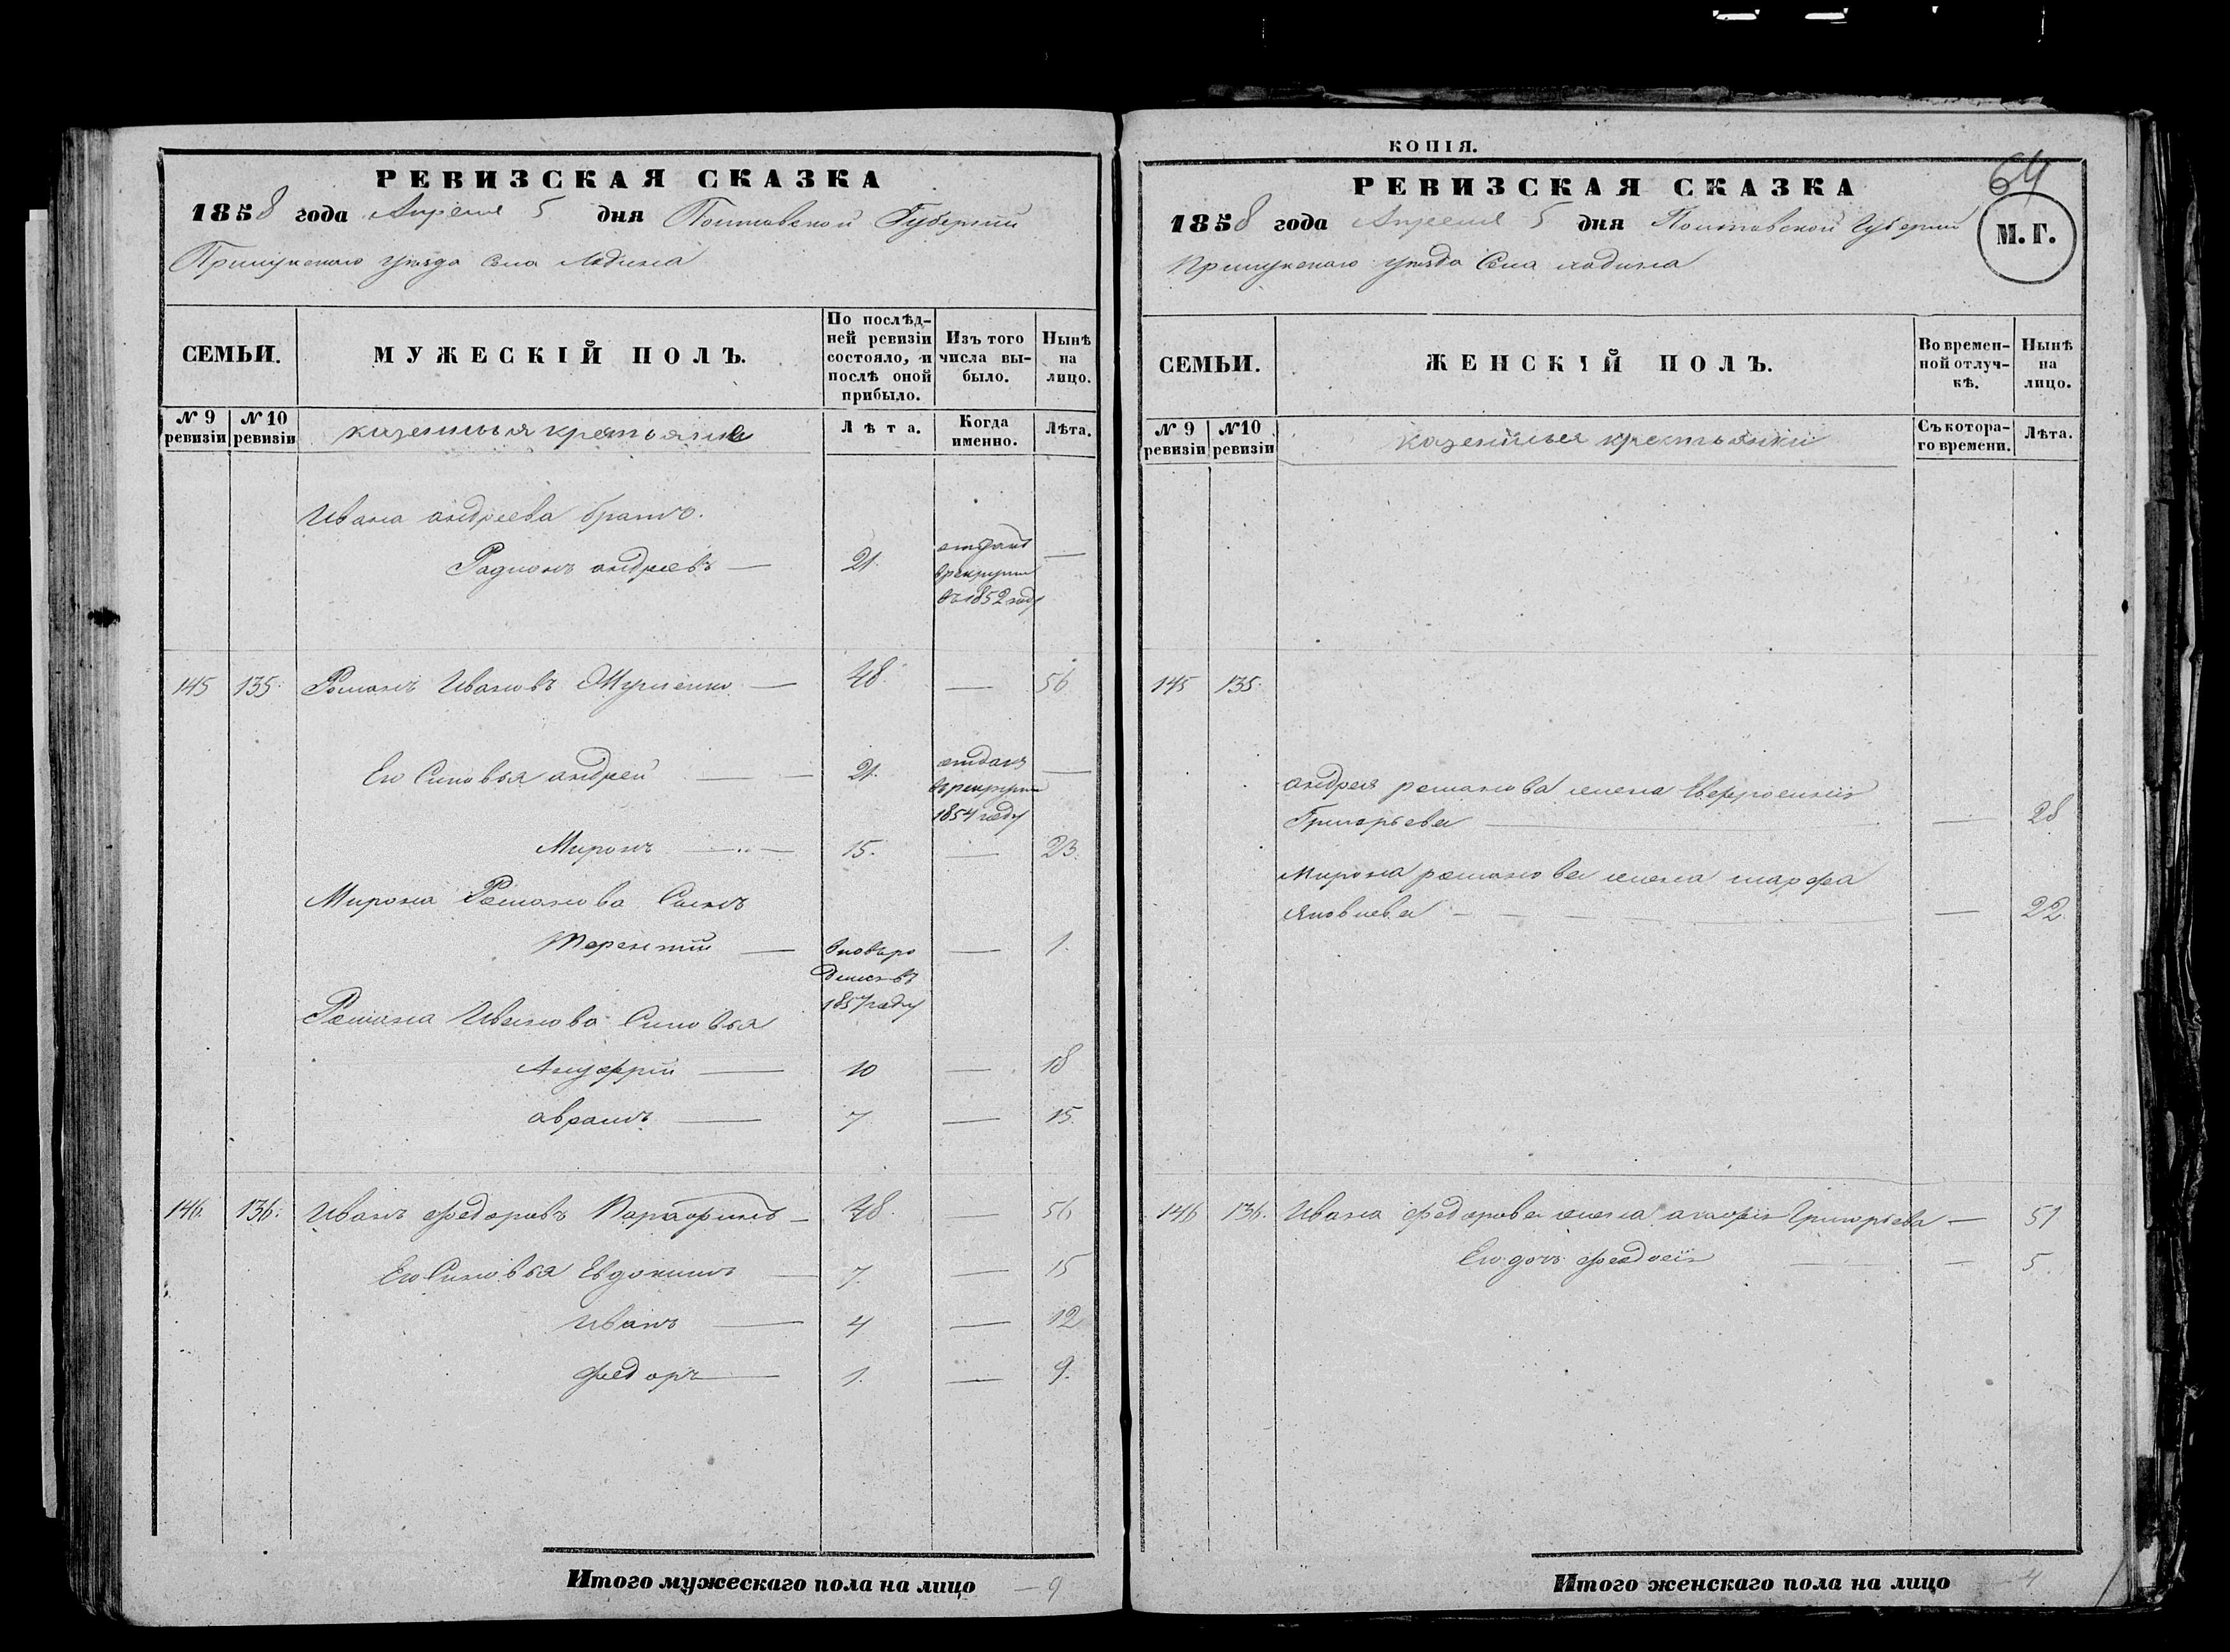 РЕВИЗСКАЯ СКАЗКА
1858 года Апреля 5 дня Полтавской Губернии
Прилукскаго уезда Села Ладина
СЕМЬИ.
МУЖЕСКІЙ ПОЛЪ.
По послѣд-
ней ревизіи
состояло, и
послѣ оной
прибыло.
Изъ того
числа вы-
было.
Нынѣ
на
лицо.
№ 9
ревизіи
№ 10
ревизіи
казенныя крестьяне
Лѣта.
Когда
именно.
Лѣта.
Ивана андреева братъ.
Радионъ андреевъ — 21. отданъ
в рекруты
въ 1852 году —
145 135. Романъ Ивановъ — 48. — 56
Его Синовья андрей — — 21. отданъ
в рекруты
1854 году —
Миронъ — 15. — 23.
Мирона Романова Сынъ
Терентий — вновь ро
денъ въ
1857 году — 1.
Романа Иванова Синовья
Ануфрий — 10 — 18
аврамъ — 7 — 15.
146. 136. Иванъ Федоровъ — 48. — 56
Его Синовья Евдокимъ — 7. — 15
Иванъ — 4 — 12
Федоръ — 1. — 9.
Итого мужескаго пола на лицо — 9
КОПІЯ.
64
РЕВИЗСКАЯ СКАЗКА
1858 года Апреля 5 дня Полтавской Губернии
М. Г.
Прилукскаго уезда Села ладина
СЕМЬИ.
ЖЕНСКІЙ ПОЛЪ.
Во времен-
ной отлуч-
кѣ.
Нынѣ
на
лицо.
№ 9
ревизіи
№ 10
ревизіи
казенныя крестьянки
Съ котора-
го времени.
Лѣта.
145 135.
андрея романова жена
Григорьева — — 28
Мирона романова жена марфа
Яковлева — — 22.
146 136. Ивана Федорова жена агафія Григорьева — 51
Его дочь феодосія — 5.
Итого женскаго пола на лицо 4